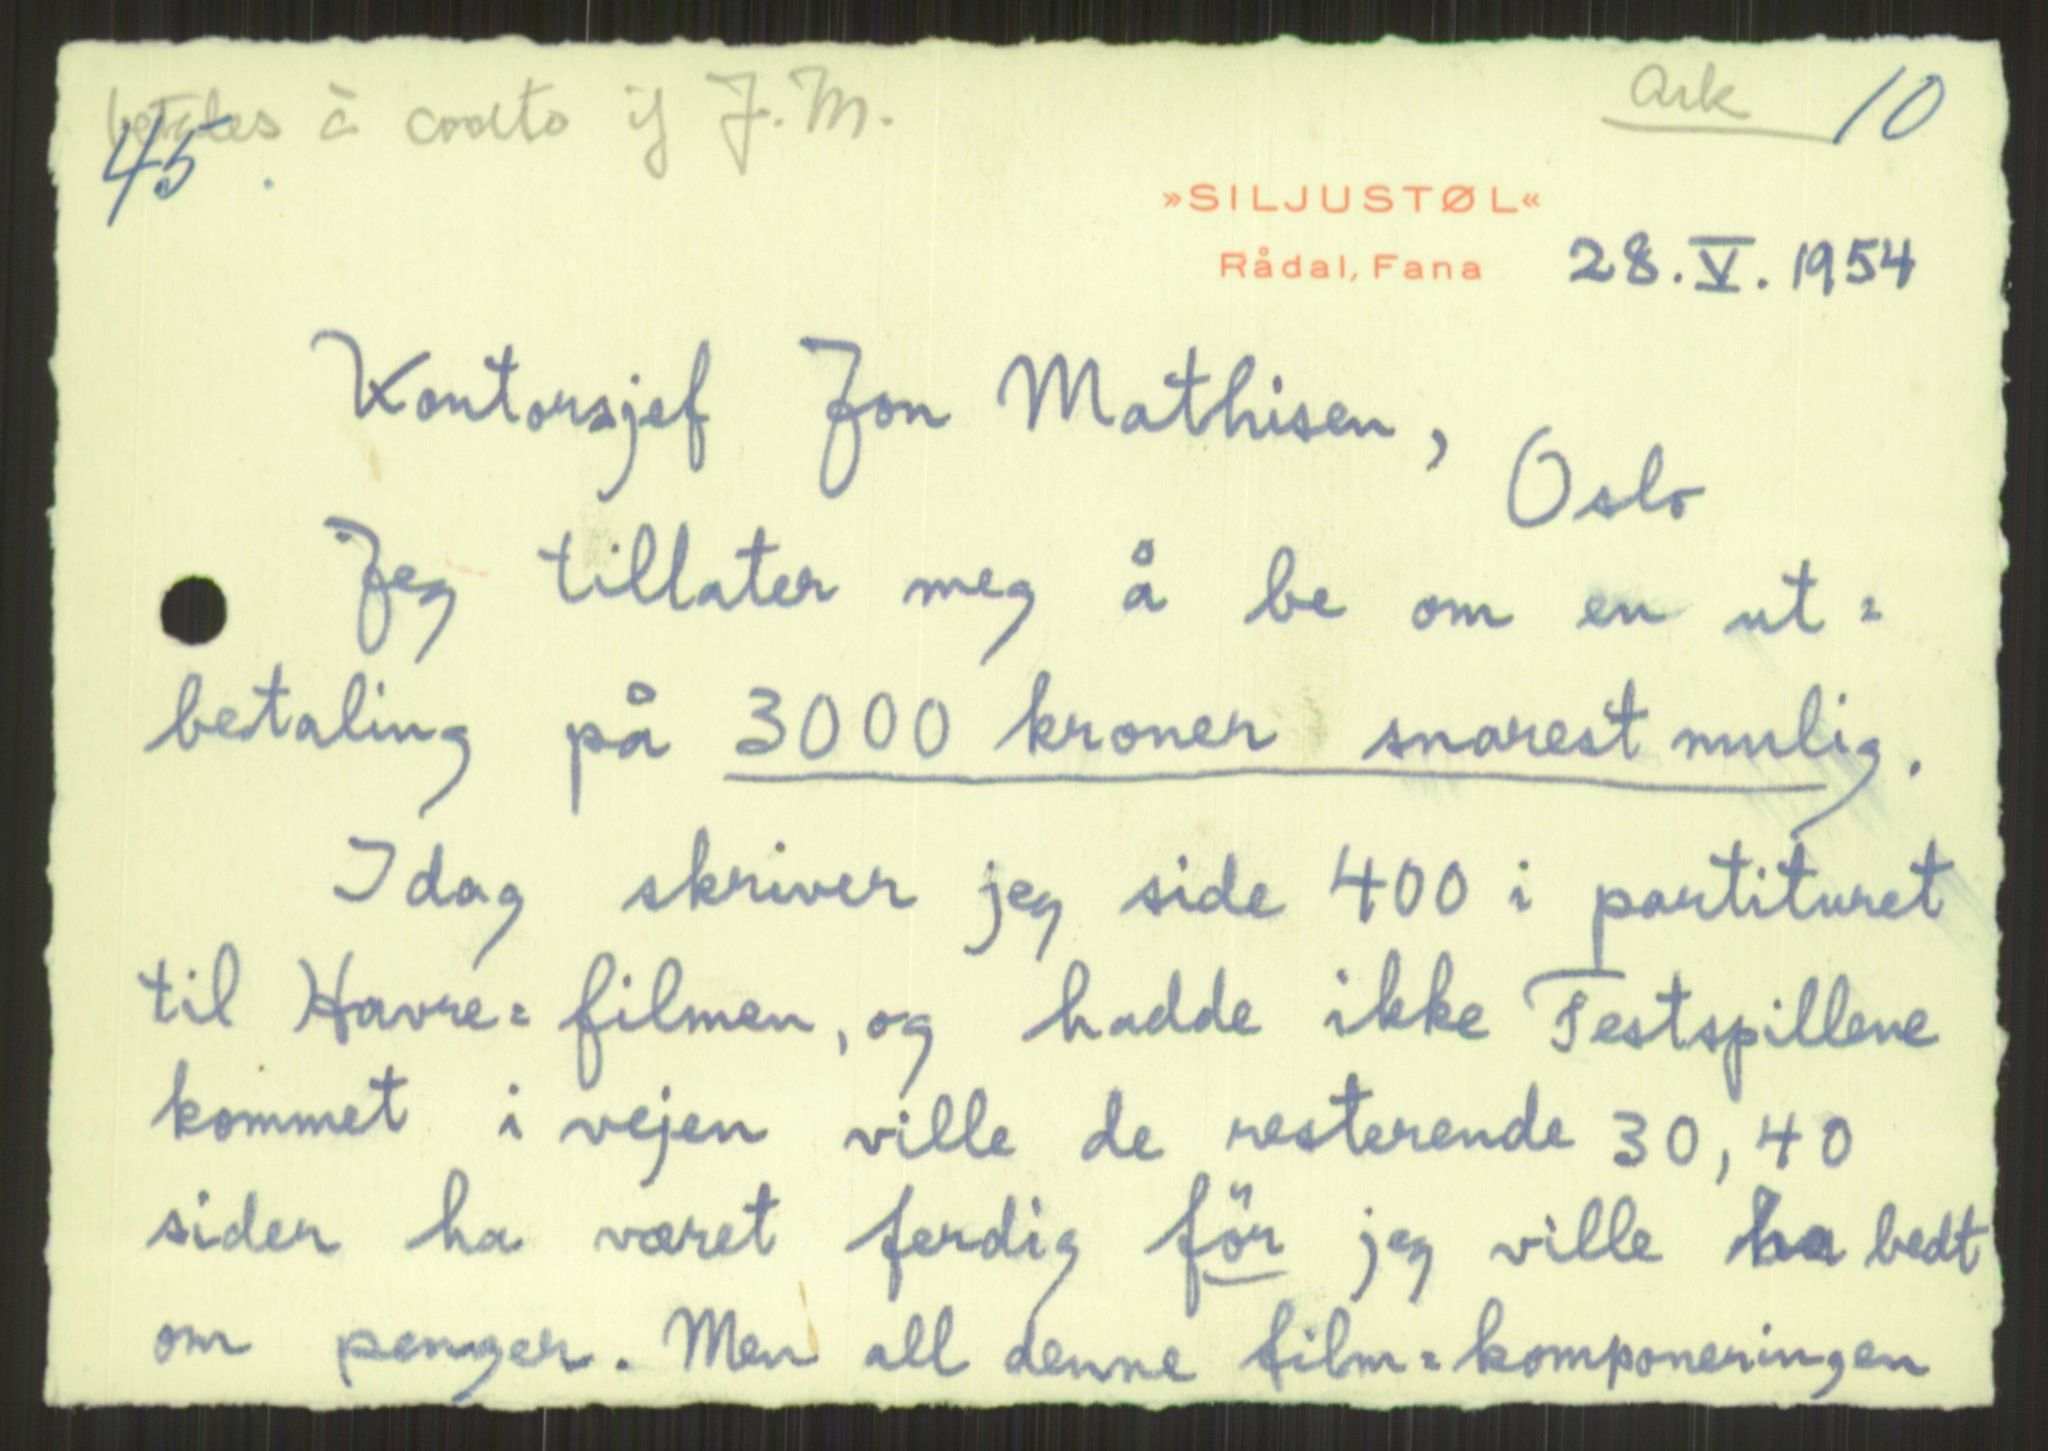 betales à conto if J. M.
Ark 10
45.
»SILJUSTØL«
Rådal, Fana 28. V. 1954
Kontorsjef Jon Mathisen,
Oslo
Jeg tillater meg å be om en ut=
betaling på 3000 kroner snarest mulig.
Idag skriver jeg side 400 i partituret
til Havre=filmen, og hadde ikke Festspillene
kommet i vejen ville de resterende 30, 40
sider ha været ferdig för jeg ville ha bedt
om penger. Men all denne film=komponeringen